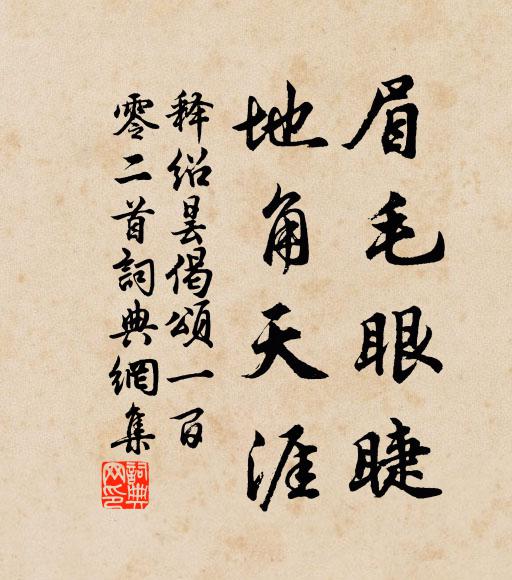 眉毛眼睫
地角天涯
释绍昙偈頌一百
零二首詞典網集
詞典网印